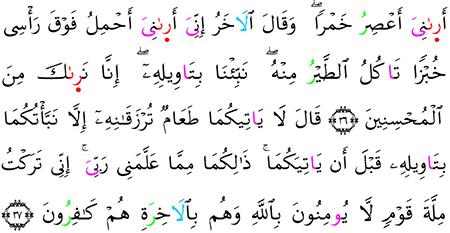 أَرَىٰنِىَ أَعْصِرُ خَمْرًاۖ وَقَالَ اَلَاخَرُ إِنِّىَ أَرَىٰنِىَ أَحْمِلُ فَوْقَ رَأْسِى
خُبْزًا تَاكُلُ اُلطَّيْرُ مِنْهُۖ نَبِّئْنَا بِتَاوِيلِهِۦٓۖ إِنَّا نَرَىٰكَ مِنَ
اَلْمُحْسِنِينَ ٣٦ قَالَ لَا يَاتِيكُمَا طَعَامٌ تُرْزَقَانِهِۦٓ إِلَّا نَبَّأْتُكُمَا
بِتَاوِيلِهِۦ قَبْلَ أَن يَاتِيَكُمَاۚ ذَٰلِكُمَا مِمَّا عَلَّمَنِى رَبِّىَۚ إِنِّى تَرَكْتُ
مِلَّةَ قَوْمٍ لَّا يُومِنُونَ بِاللَّهِ وَهُم بِالَاخِرَةِ هُمْ كَٰفِرُونَ ٣٧